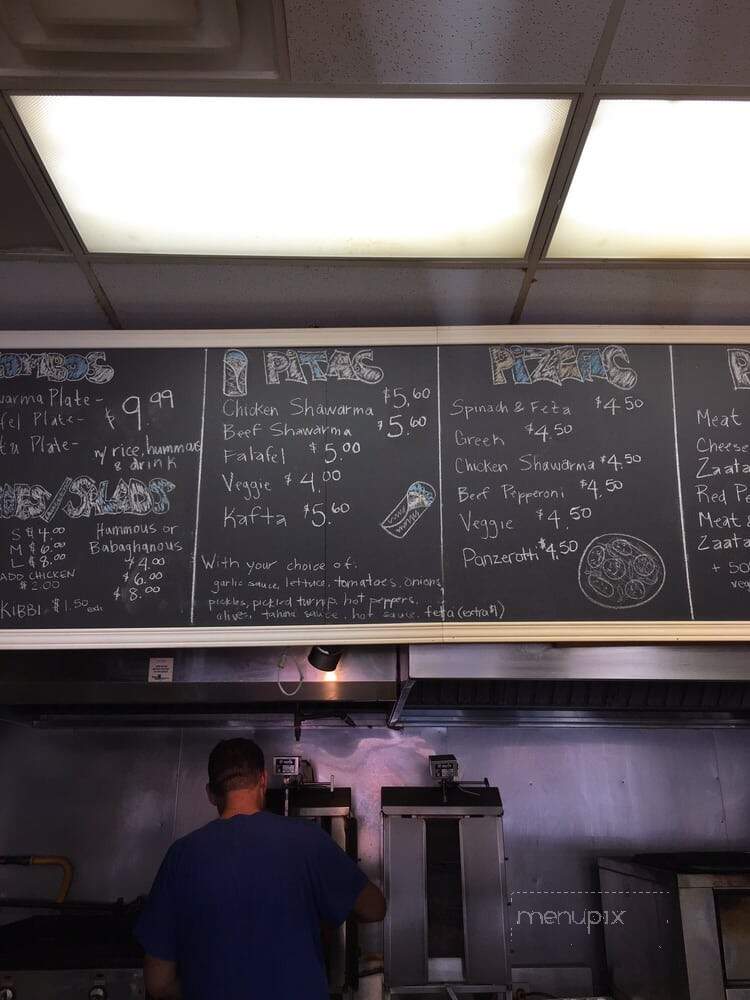 PITAS
Chicken Shawarma $5.60
Beef Shawarma $5.60
Falafel $5.00
Veggie $4.00
Kafta $5.60
With your choice of:
garlic sauce, lettuce, tomatoes, onions,
pickles, pickled turnip, hot peppers,
olives, tahina sauce, hot sauce, feta (extra $1)
PIZZAS
Spinach & Feta $4.50
Greek $4.50
Chicken Shawarma $4.50
Beef Pepperoni $4.50
Veggie $4.50
Panzerotti $4.50
Plate -
Plate -
Plate -
$9.99
w/ rice, hummus
& drink
/SALADS
S $4.00
M $6.00
L $8.00
ADD CHICKEN
$2.00
KIBBI - $1.50 each
Hummous or
Babaghanous
$4.00
$6.00
$8.00
Meat
Cheese
Zaata
Red P
Meat
Zaata
+ 50
menupix